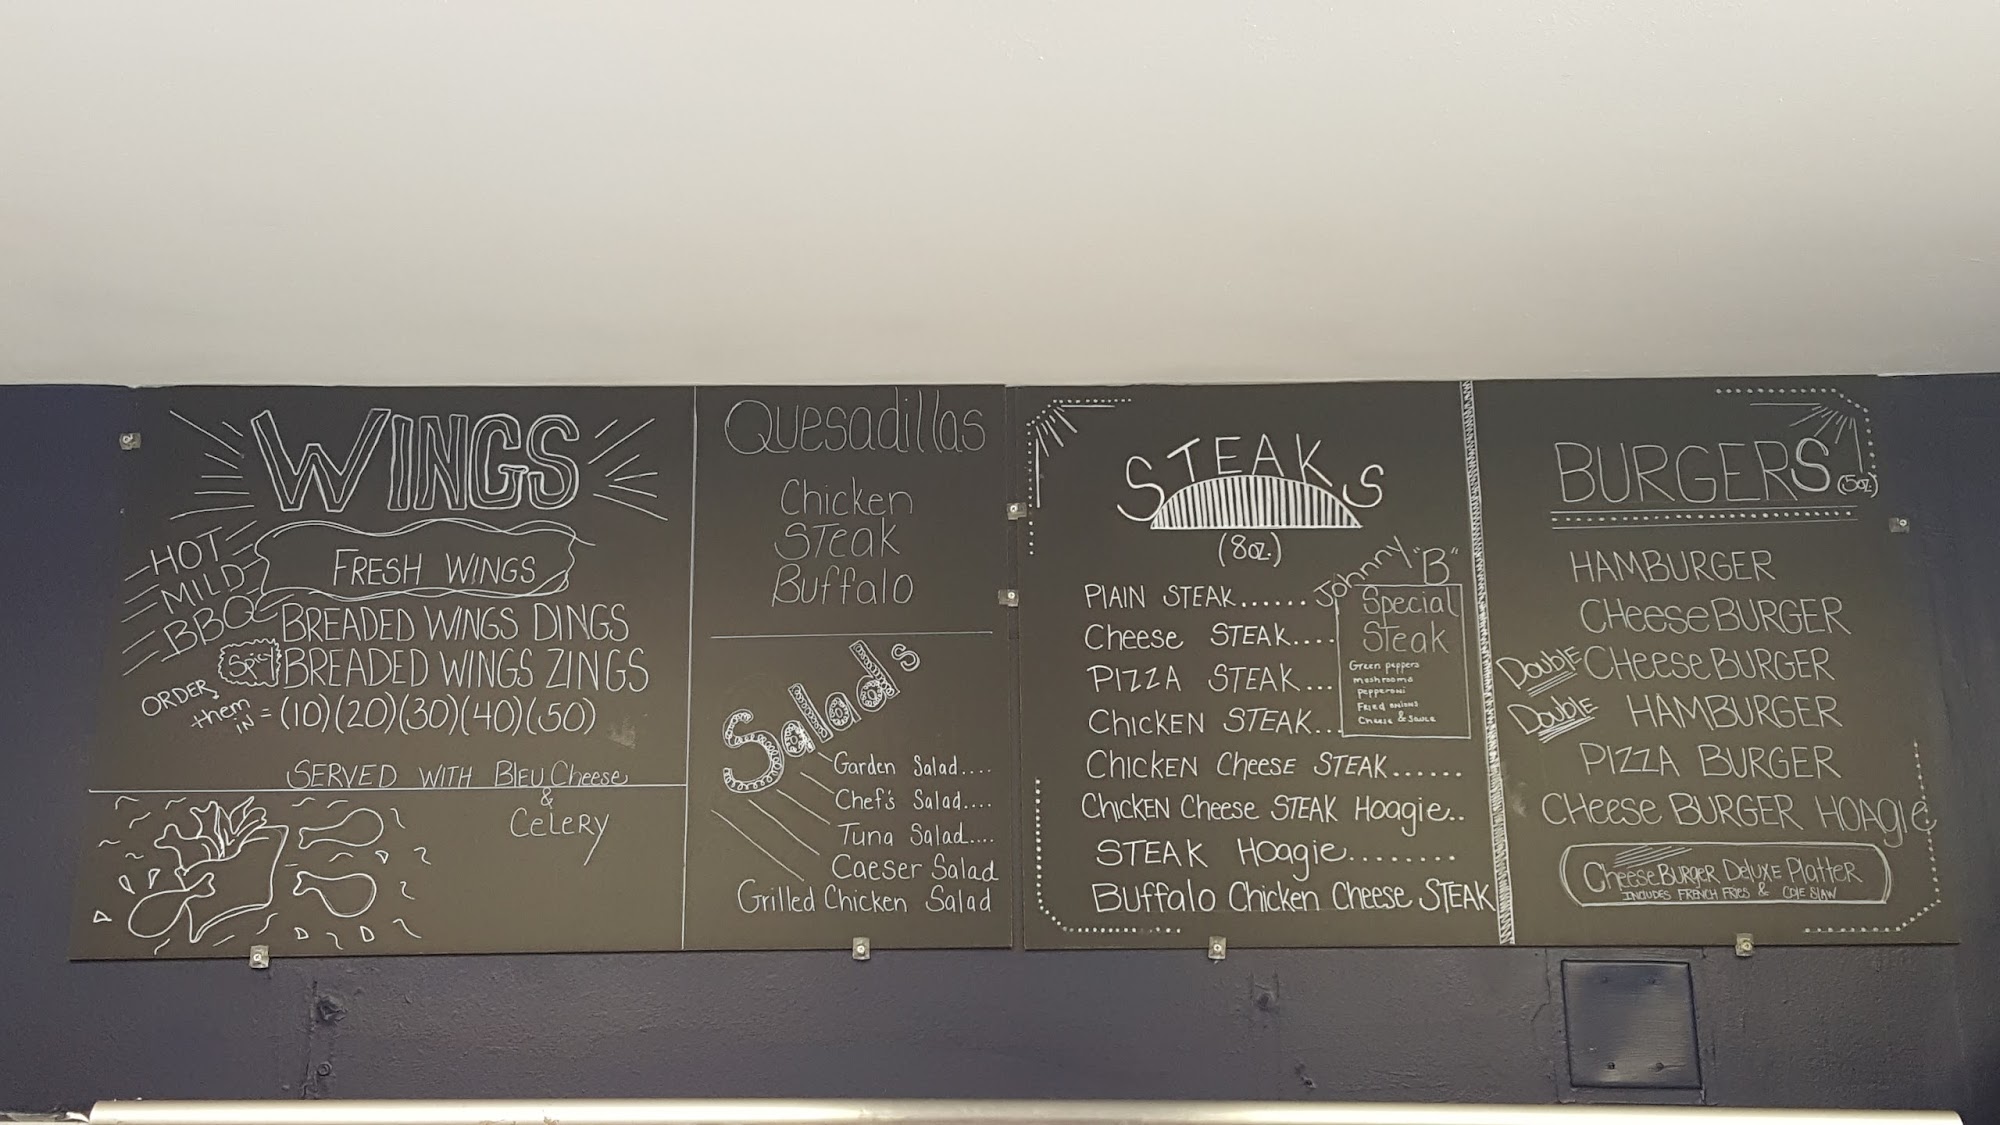 WINGS
HOT
MILD
BBQ
FRESH WINGS
BREADED WINGS DINGS
Spicy BREADED WINGS ZINGS
ORDER them IN = (10)(20)(30)(40)(50)
SERVED WITH BLEU Cheese
&
CeLERY
Quesadillas
Chicken
STeak
Buffalo
Salads
Garden Salad....
Chef's Salad....
Tuna Salad....
Caeser Salad
Grilled Chicken Salad
STEAKS
(8oz.)
PLAIN STEAK......
Cheese STEAK....
PIZZA STEAK...
CHICKEN STEAK...
CHICKEN Cheese STEAK......
CHICKEN Cheese STEAK Hoagie..
STEAK Hoagie........
Buffalo Chicken Cheese STEAK
Johnny "B"
Special
Steak
Green peppers
mushrooms
Pepperoni
Fried onions
Cheese & Sauce
BURGERS (5oz.)
HAMBURGER
CHeese BURGER
Double CHeese BURGER
Double HAMBURGER
PIZZA BURGER
CHeese BURGER HOAgie
Cheese BURGER Deluxe Platter
INCLUDES FRENCH FRIES & COLE SLAW